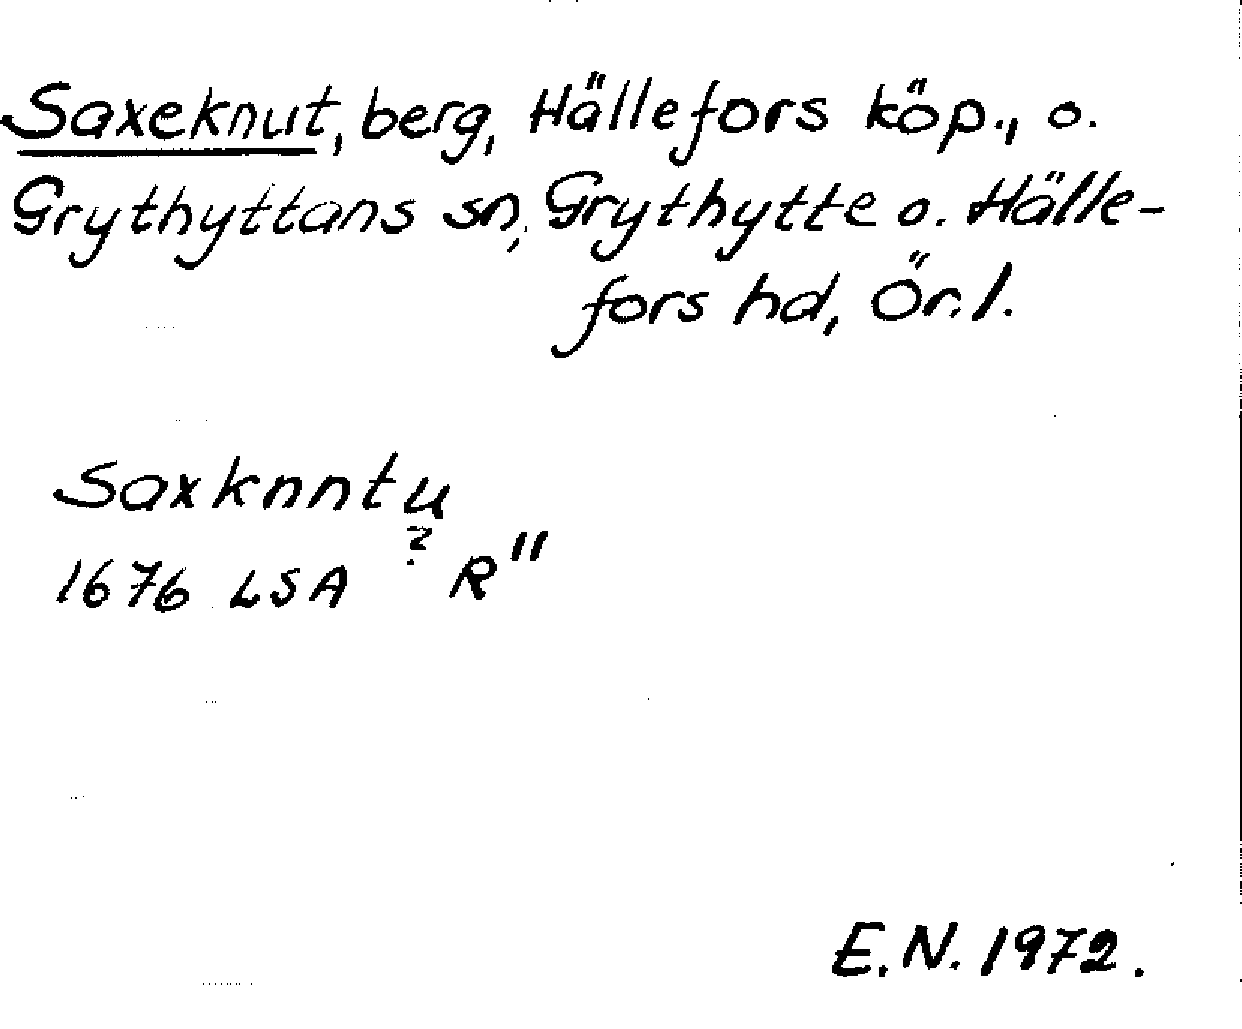 Saxeknut, berg, Hällefors köp., o.
Grythyttans sn, Grythytte o. Hälle-
fors hd, Ör.l.
Saxknntu
?
1676 LSA R"
E.N. 1972.